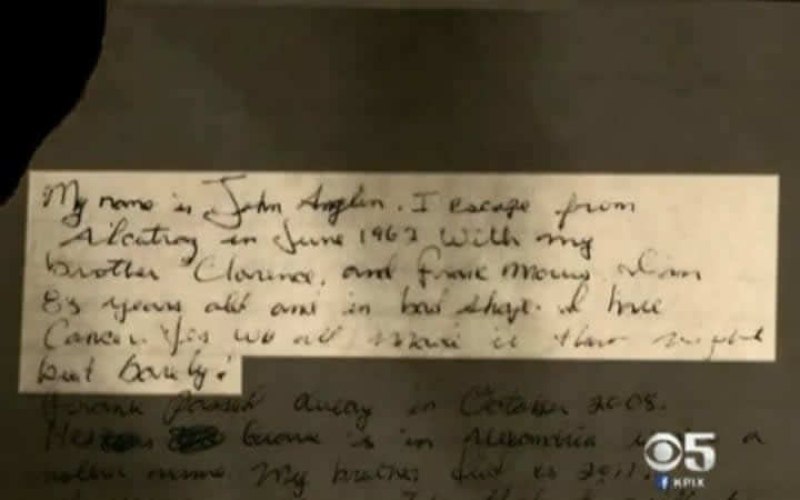 My name is John Anglin. I escape from
Alcatraz in June 1962 With my
brother Clarence, and Frank Morris. I'm
83 years old and in bad shape. I have
Cancer. Yes we all made it that night
but barely!
Frank passed away in October 2008.
His grave is in Alexandria a
nother name. My brother died in 2011.
5
KPIX